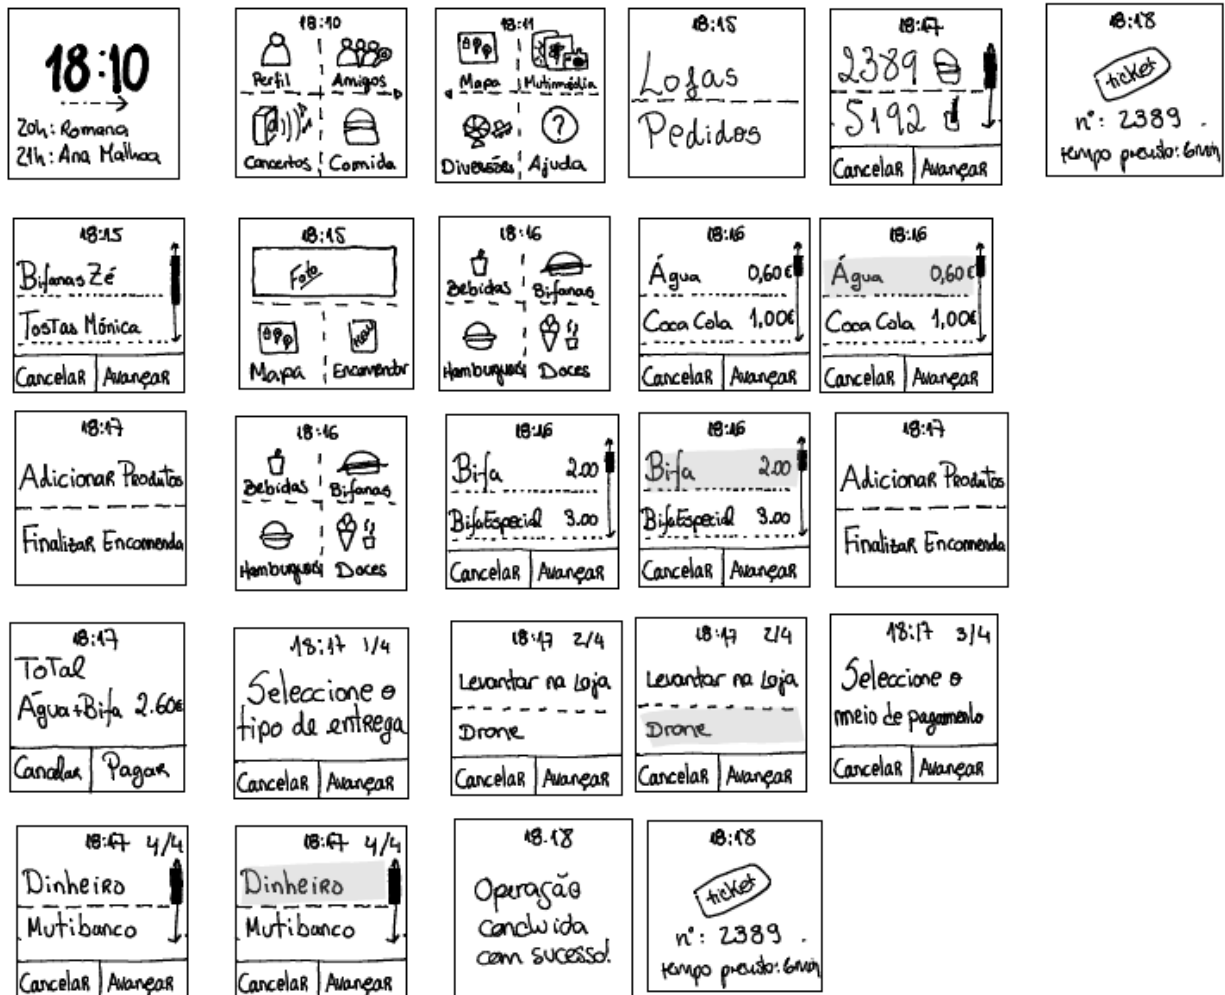 18:10
20h: Romana
21h: Ana Malhoa
18:10
Perfil Amigos
Concertos Comida
18:11
Mapa Mutimédia
?
Diversões Ajuda
18:15
Lojas
Pedidos
18:17
2389
5192
Cancelar Avançar
18:18
ticket
nº: 2389
tempo previsto: 6min
18:15
Bifanas Zé
Tostas Mónica
Cancelar Avançar
18:15
Foto
Mapa Encomendar
18:16
Bebidas Bifanas
Hamburgueres Doces
18:16
Água 0,60€
Coca Cola 1,00€
Cancelar Avançar
18:16
Água 0,60€
Coca Cola 1,00€
Cancelar Avançar
18:17
Adicionar Produtos
Finalizar Encomenda
18:16
Bebidas Bifanas
Hamburgueres Doces
18:16
Bifa 2.00
Bifa Especial 3.00
Cancelar Avançar
18:16
Bifa 2.00
Bifa Especial 3.00
Cancelar Avançar
18:17
Adicionar Produtos
Finalizar Encomenda
18:17
Total
Água+Bifa 2.60€
Cancelar Pagar
18:17 1/4
Seleccione o
tipo de entrega
Cancelar Avançar
18:17 2/4
Levantar na Loja
Drone
Cancelar Avançar
18:17 2/4
Levantar na Loja
Drone
Cancelar Avançar
18:17 3/4
Seleccione o
meio de pagamento
Cancelar Avançar
18:17 4/4
Dinheiro
Mutibanco
Cancelar Avançar
18:17 4/4
Dinheiro
Mutibanco
Cancelar Avançar
18.18
Operação
concluida
com sucesso!
18:18
ticket
nº: 2389
tempo previsto: 6min